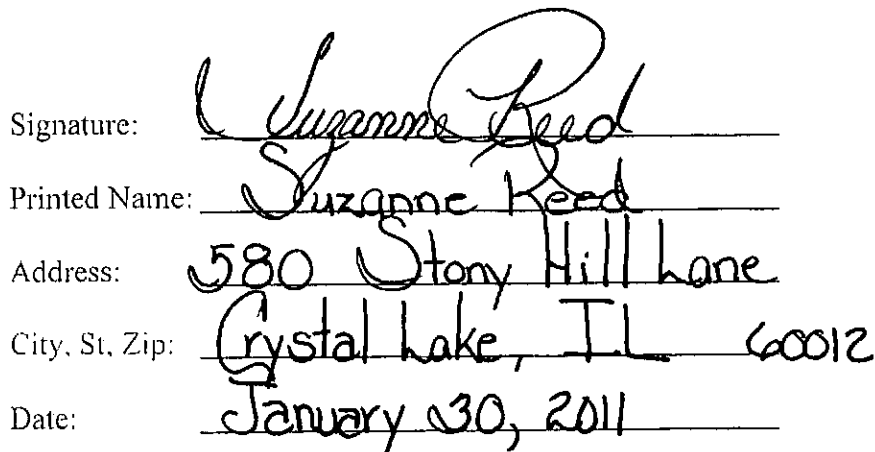 Signature: Suzanne Reed
Printed Name: Suzanne Reed
Address: 580 Stony Hill Lane
City, St, Zip: Crystal Lake, IL 60012
Date: January 30, 2011